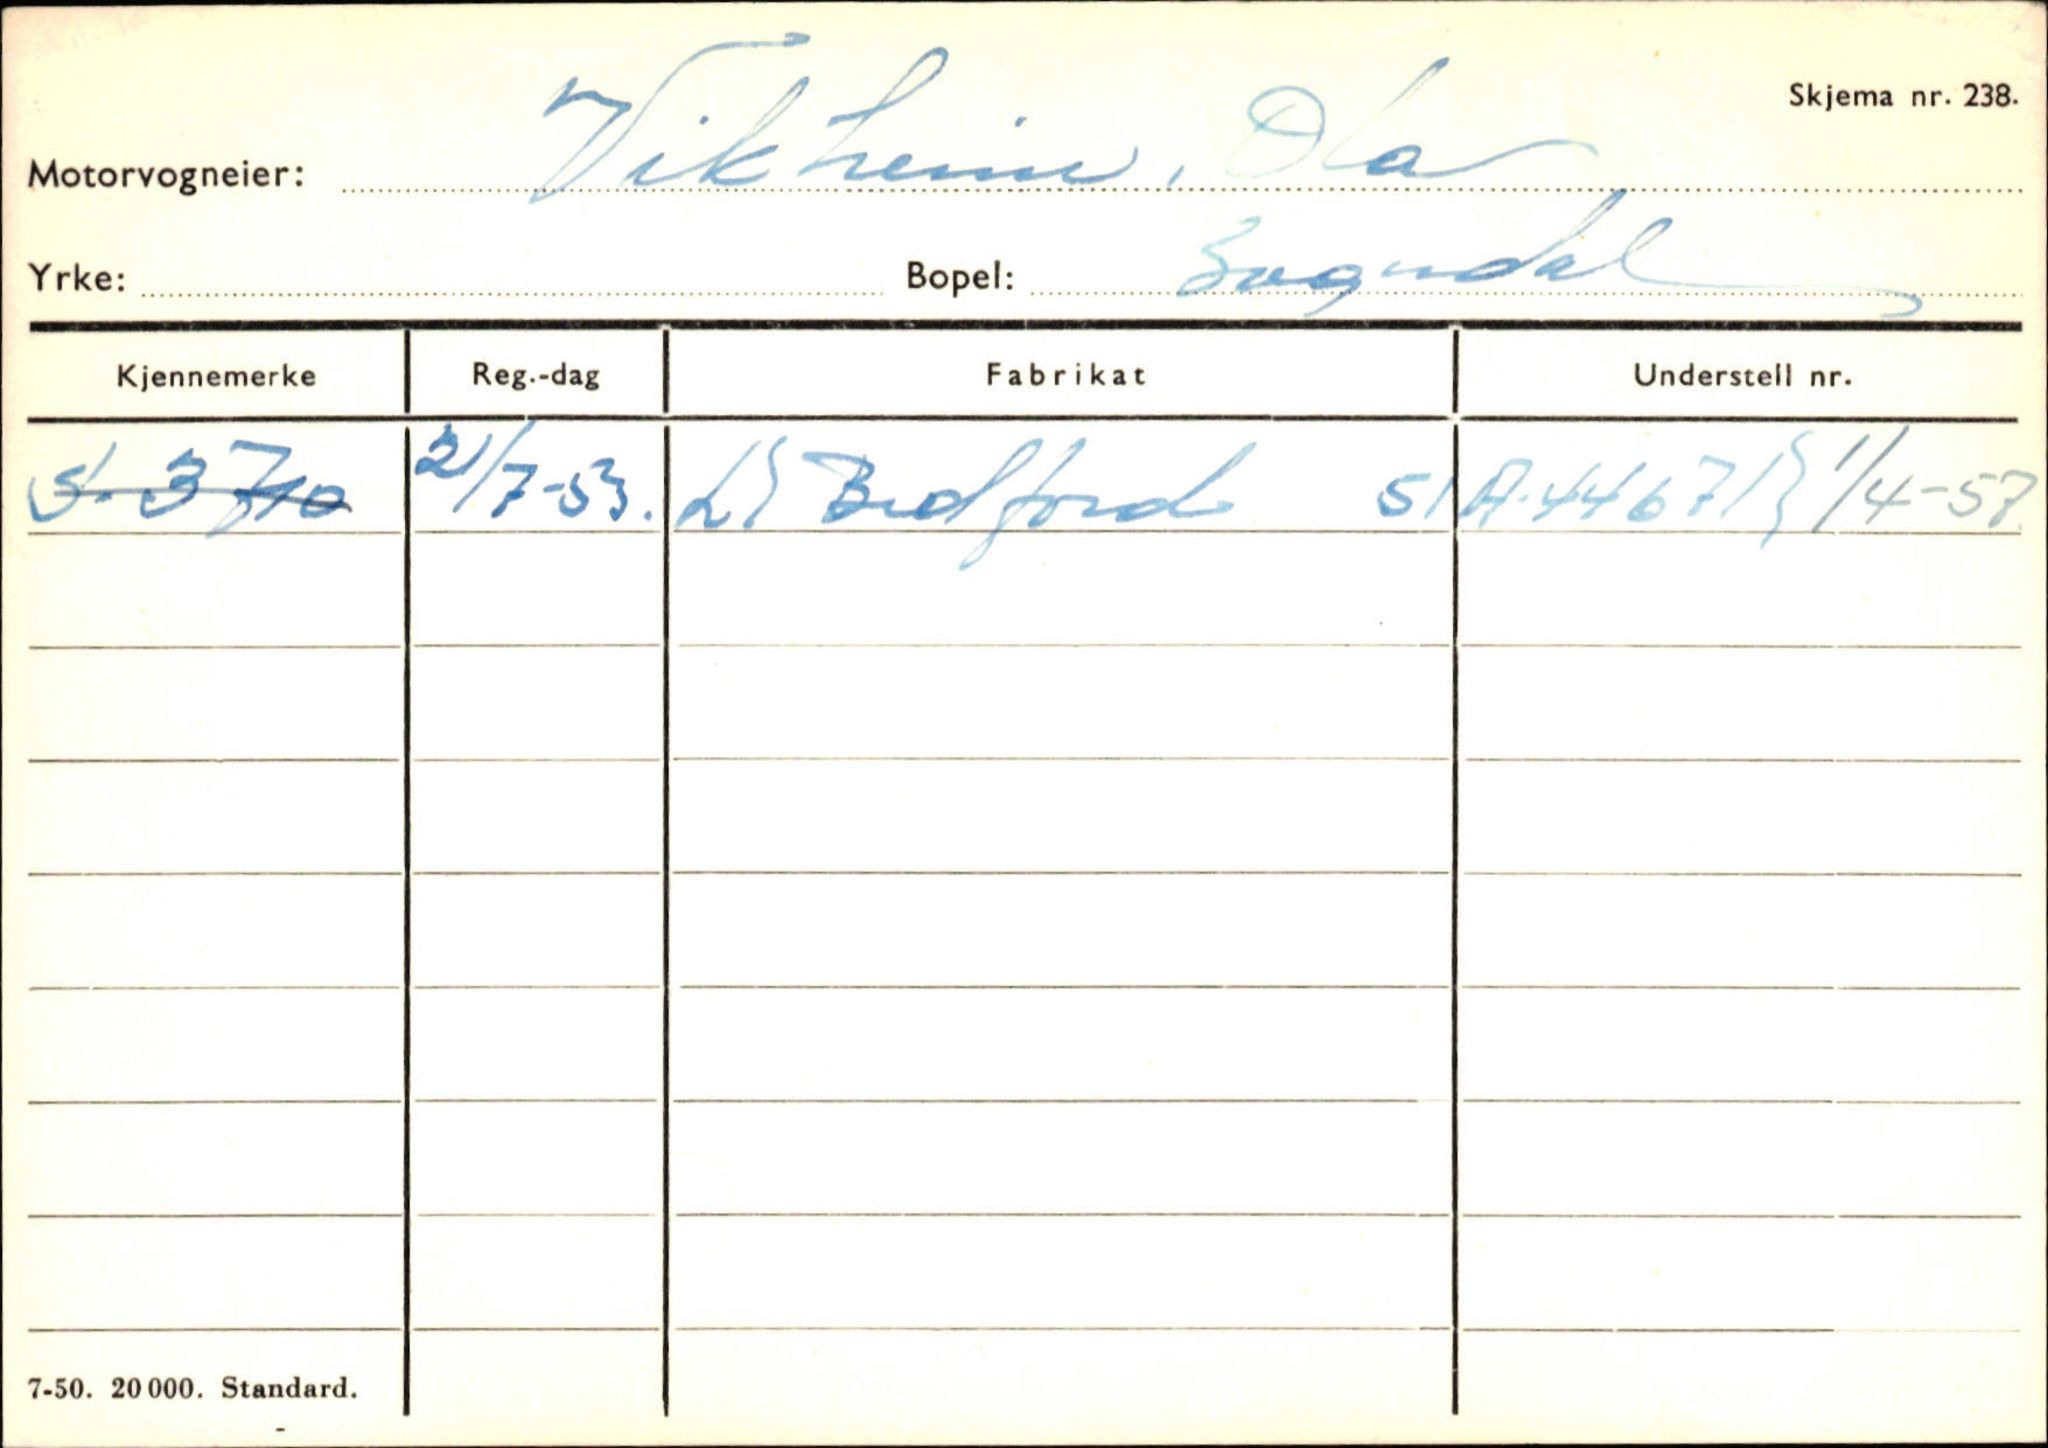 Skjema nr. 238.
Motorvogneier: Vikheim, Ola
Yrke: Bopel: Sogndal
Kjennemerke Reg.-dag Fabrikat Understell nr.
S-3710 21/7-53. L} Bedford 51 A-44671} 1/4-57
7-50. 20 000. Standard.